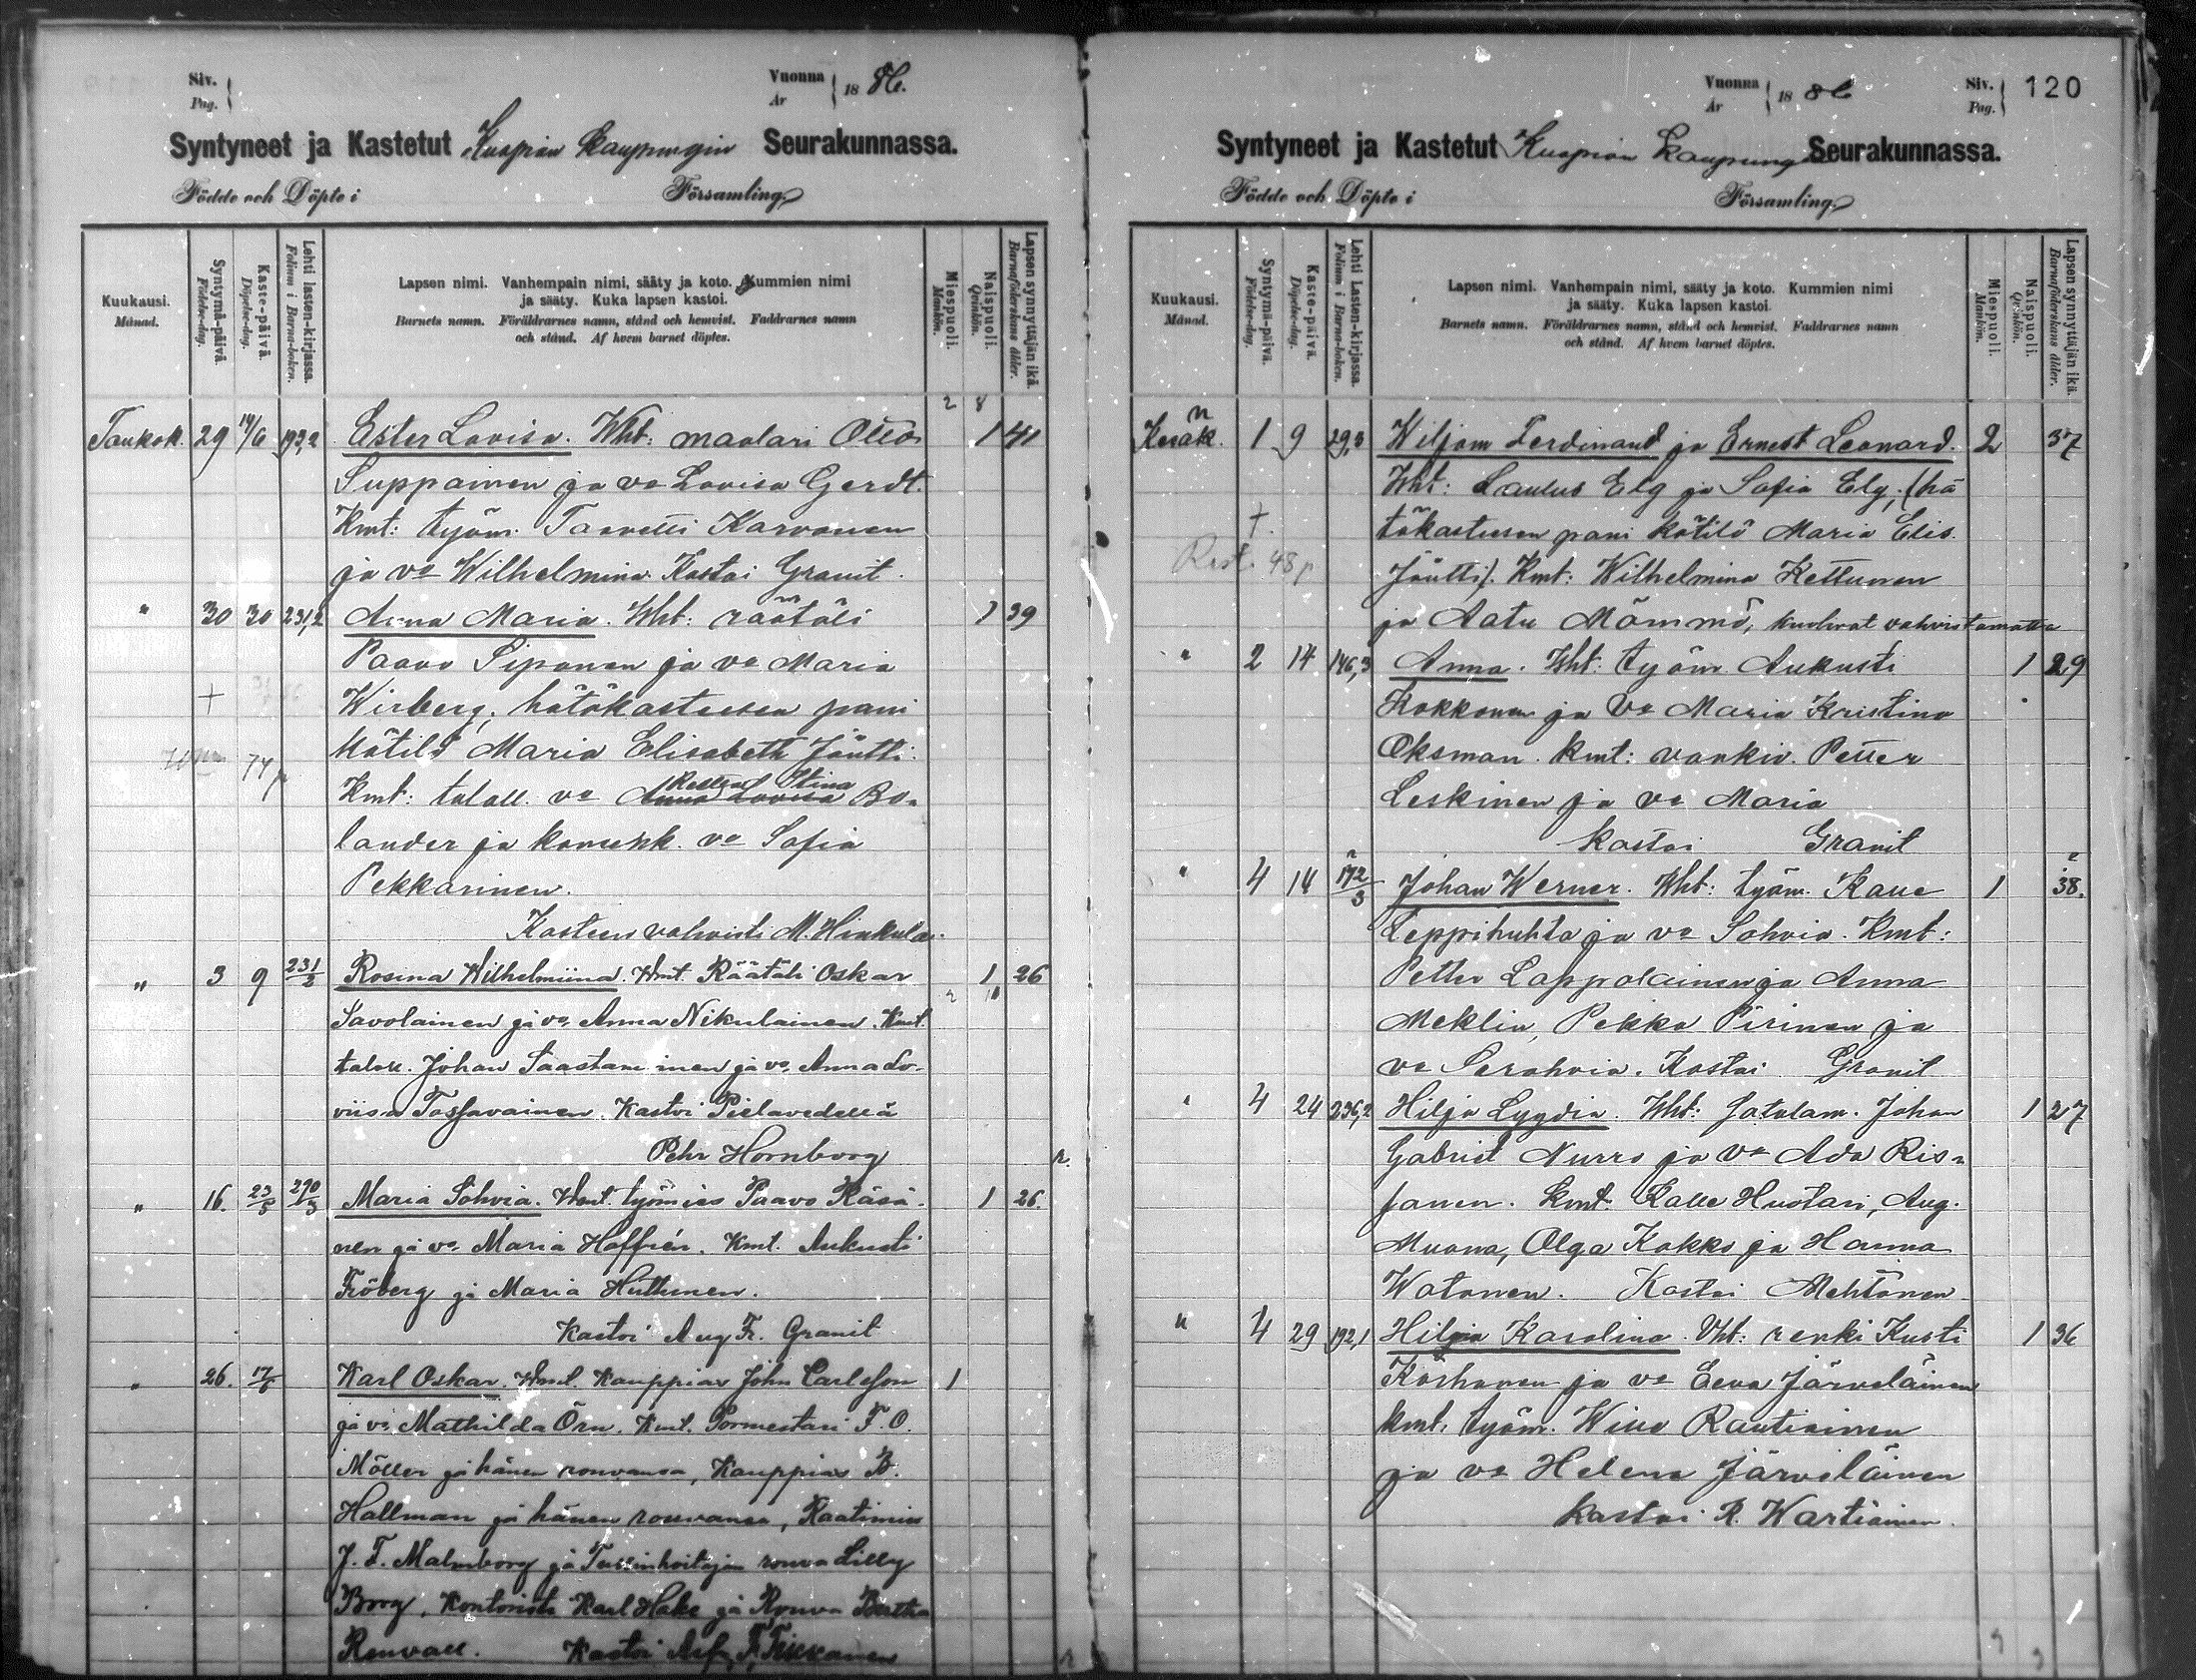 Siv.
Pag.
Vuonna
År
18 86.
Syntyneet ja Kastetut Kuopion Kaupungin Seurakunnassa.
Födde och Döpte i Församling.
Kuukausi.
Månad.
Syntymä-päivä.
Födelse-dag.
Kaste-päivä.
Döpelse-dag.
Lehti lasten-kirjassa.
Folium i Barna-boken.
Lapsen nimi. Vanhempain nimi, sääty ja koto. Kummien nimi
ja sääty. Kuka lapsen kastoi.
Barnets namn. Föräldrarnes namn, stånd och hemvist. Faddrarnes namn
och stånd. Af hvem barnet döptes.
Miespuoli.
Mankön.
Naispuoli.
Qvinkön.
Lapsen synnyttäjän ikä.
Barnaföderskans ålder.
2 8
Toukok. 29 14/6 193,2 Ester Lovisa. Wht: maalari Otto 1 41
Suppainen ja vo Lovisa Gerdt.
Kmt: työm. Taavetti Karvonen
ja vo Wilhelmina. Kastoi Granit.
" 30 30 231,2 Anna Maria. Wht: räätäli 1 39
Paavo Siponen ja vo Maria
+ Wirberg; hätäkasteesen pani
74 p Kätilö Maria Elisabeth Jäntti.
Stina
Kmt: talall. vo Anna Lovisa Bo-
lander ja vo Sofia
Pekkarinen.
Kasteen vahvisti M. Hinkula.
" 3 9 231/2 Rosina Wilhelmiina. Wmt. Räätäli Oskar 1 26
Savolainen ja vo Anna Nikulainen. Kmt.
talall. Johan Saastamoinen ja vo Anna Lo-
viisa Tossavainen. Kastoi Pielavedellä
Pehr Hornborg
" 16. 23/5 290/3 Maria Sohvia. Wmt. työmies Paavo Räsä- 1 26.
nen ja vo Maria Hoffrén. Kmt. Aukusti
Fröberg ja Maria Huttunen.
Kastoi Aug Fr. Granit
" 26. 17/6 Karl Oskar. Wmt. Kauppias John Carlsson 1
ja vo Mathilda Örn. Kmt. Pormestari F. O.
Möller ja hänen rouvansa, Kauppias B.
Hallman ja hänen rouvansa, Raatimies
J. F. Malmborg ja Tullinhoitajan rouva Lilly
Borg, Kontoristi Karl Hake ja Rouva Bertha
Renvall. Kastoi
Vuonna
År
18 86
Siv.
Pag.
120
Syntyneet ja Kastetut Kuopion Kaupungin Seurakunnassa.
Födde och Döpte i Församling.
Kuukausi.
Månad.
Syntymä-päivä.
Födelse-dag.
Kaste-päivä.
Döpelse-dag.
Lehti Lasten-kirjassa.
Folium i Barna-boken.
Lapsen nimi. Vanhempain nimi, sääty ja koto. Kummien nimi
ja sääty. Kuka lapsen kastoi.
Barnets namn. Föräldrarnes namn, stånd och hemvist. Faddrarnes namn
och stånd. Af hvem barnet döptes.
Miespuoli.
Mankön.
Naispuoli.
Qvinkön.
Lapsen synnyttäjän ikä.
Barnaföderskans ålder.
Kesäk. 1 9 29,3 Wiljam Ferdinand ja Ernest Leonard. 2 37
Wht: Paulus Elg ja Sofia Elg; (hä
+. täkasteesen pani kätilö Maria Elis.
48 p Jäntti). Kmt: Wilhelmina Kettunen
ja Aatu Mömmö, kuolivat vahvistamatta
" 2 14 146,3 Anna. Wht: työm Aukusti 1 29
Kokkonen ja Vo Maria Kristina
Oksman. Kmt: vankiv. Petter
Leskinen ja vo Maria
Kastoi Granit
" 4 14 172/3 Johan Werner. Wht: työm. Kalle 1 38.
Leppihuhta ja vo Sohvia. Kmt:
Petter Lappalainen ja Anna
Meklin, Pekka Pirinen ja
vo Serahvia. Kastoi Granit
" 4 24 236,2 Hilja Lyydia. Wht: Satulam. Johan 1 27
Gabriel Nurro ja vo Ada Ris-
sanen. Kmt. Kalle Huotari, Aug.
Muona, Olga Kokko ja Hanna
Watanen. Kastoi Mehtönen
" 4 29 192,1 Hilja Karolina. Vht: renki Kusti 1 36
Korhonen ja vo Eeva Järveläinen
kmt. työm. Wille Rautiainen
ja vo Helena Järveläinen
Kastoi R. Wartiainen.